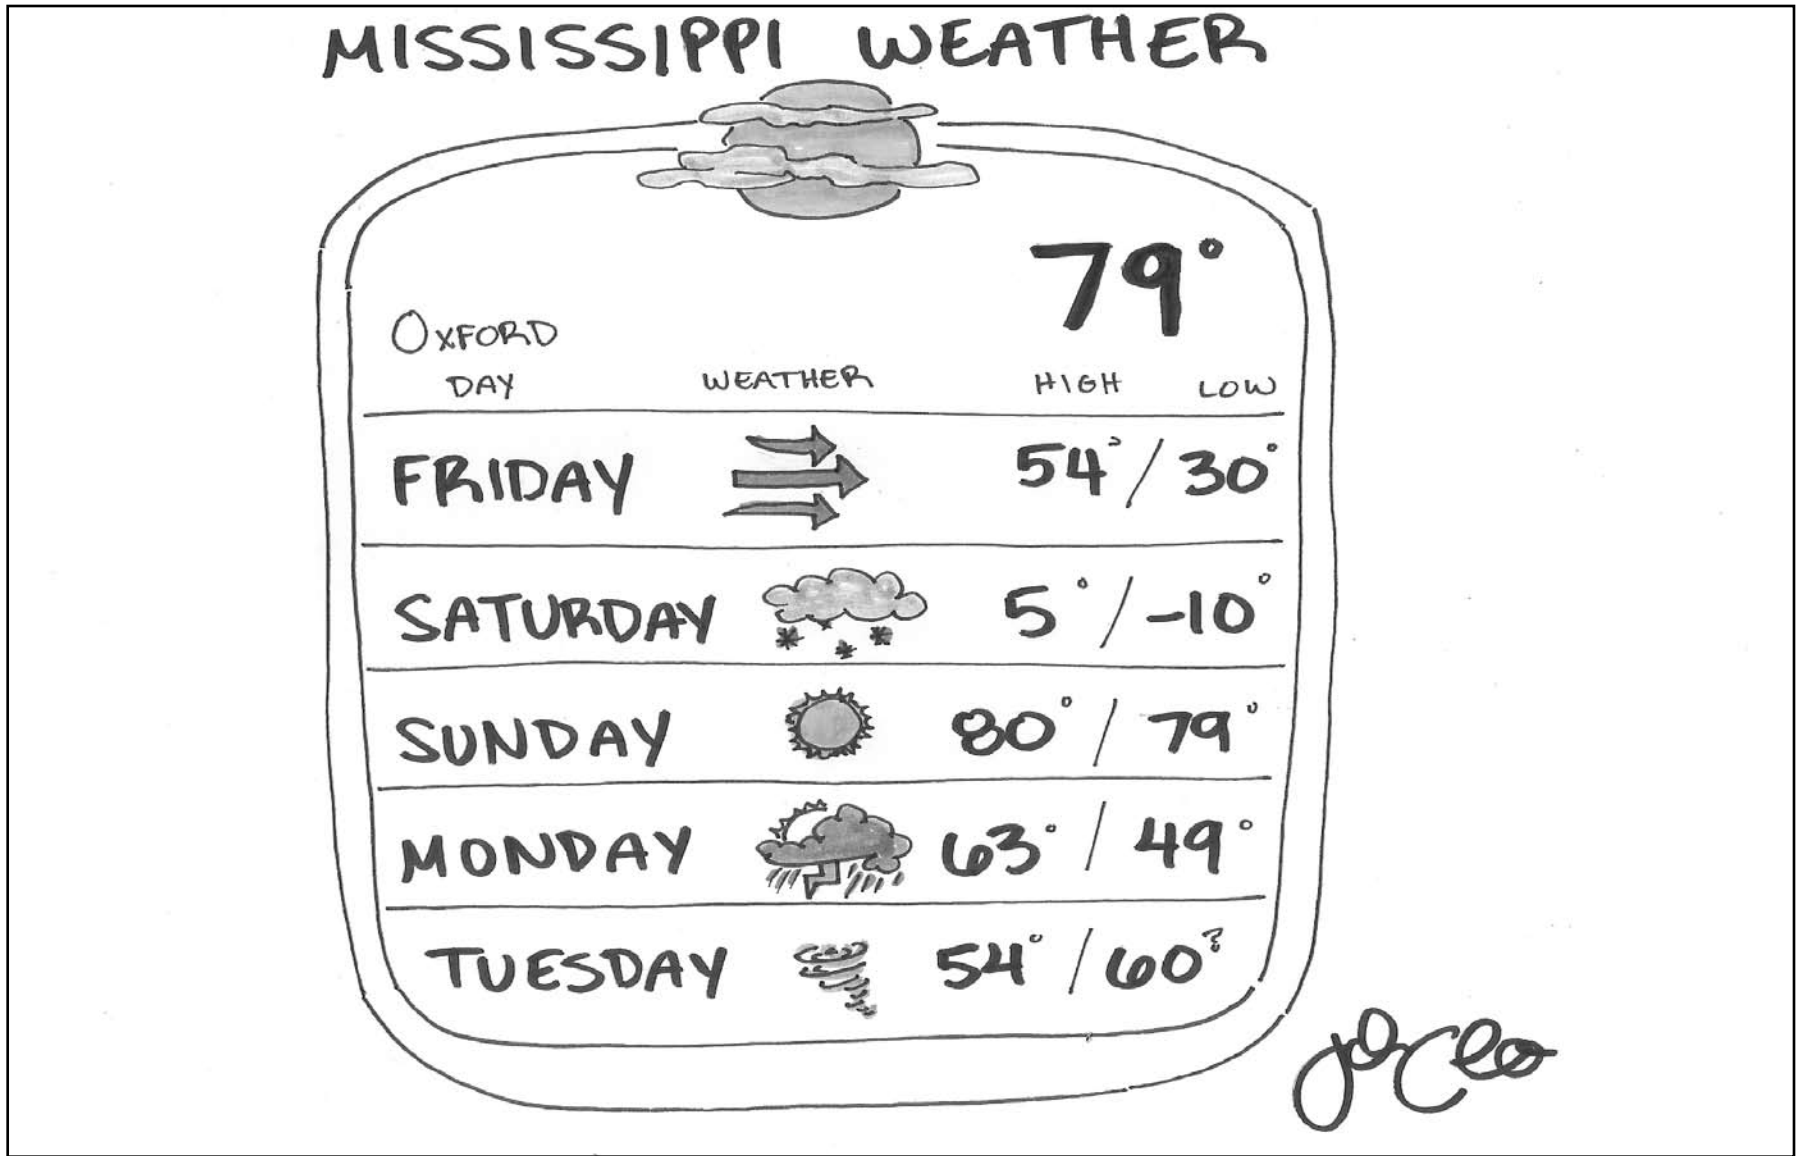 MISSISSIPPI WEATHER
79°
OXFORD
DAY WEATHER HIGH LOW
FRIDAY 54° / 30°
SATURDAY 5° / -10°
SUNDAY 80° / 79°
MONDAY 63° / 49°
TUESDAY 54° / 60?